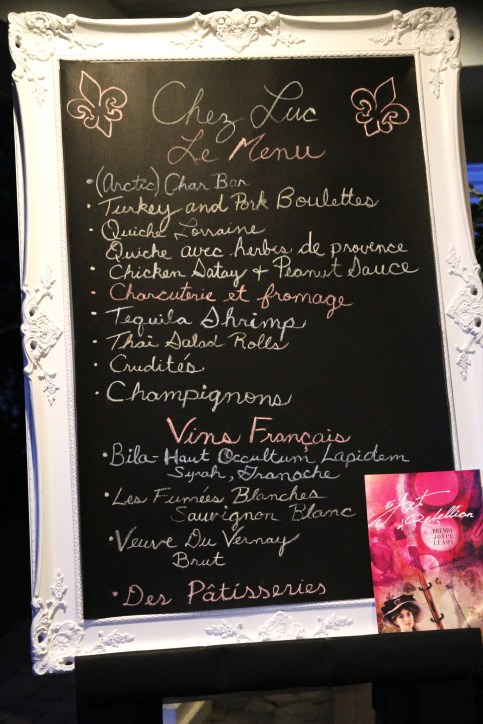 Chez Luc
Le Menu
• (Arctic) Char Bar
• Turkey and Pork Boulettes
• Quiche Lorraine
Quiche avec herbes de provence
• Chicken Satay + Peanut Sauce
• Charcuterie et fromage
• Tequila Shrimp
• Thai Salad Rolls
• Crudités
• Champignons
Vins Français
• Bila-Haut Occultum Lapidem
Syrah, Granoche
• Les Fumées Blanches
Sauvignon Blanc
• Veuve Du Vernay
Brut
• Des Pâtisseries
the Art
of Rebellion
BRENDA
JOYCE
LEAHY